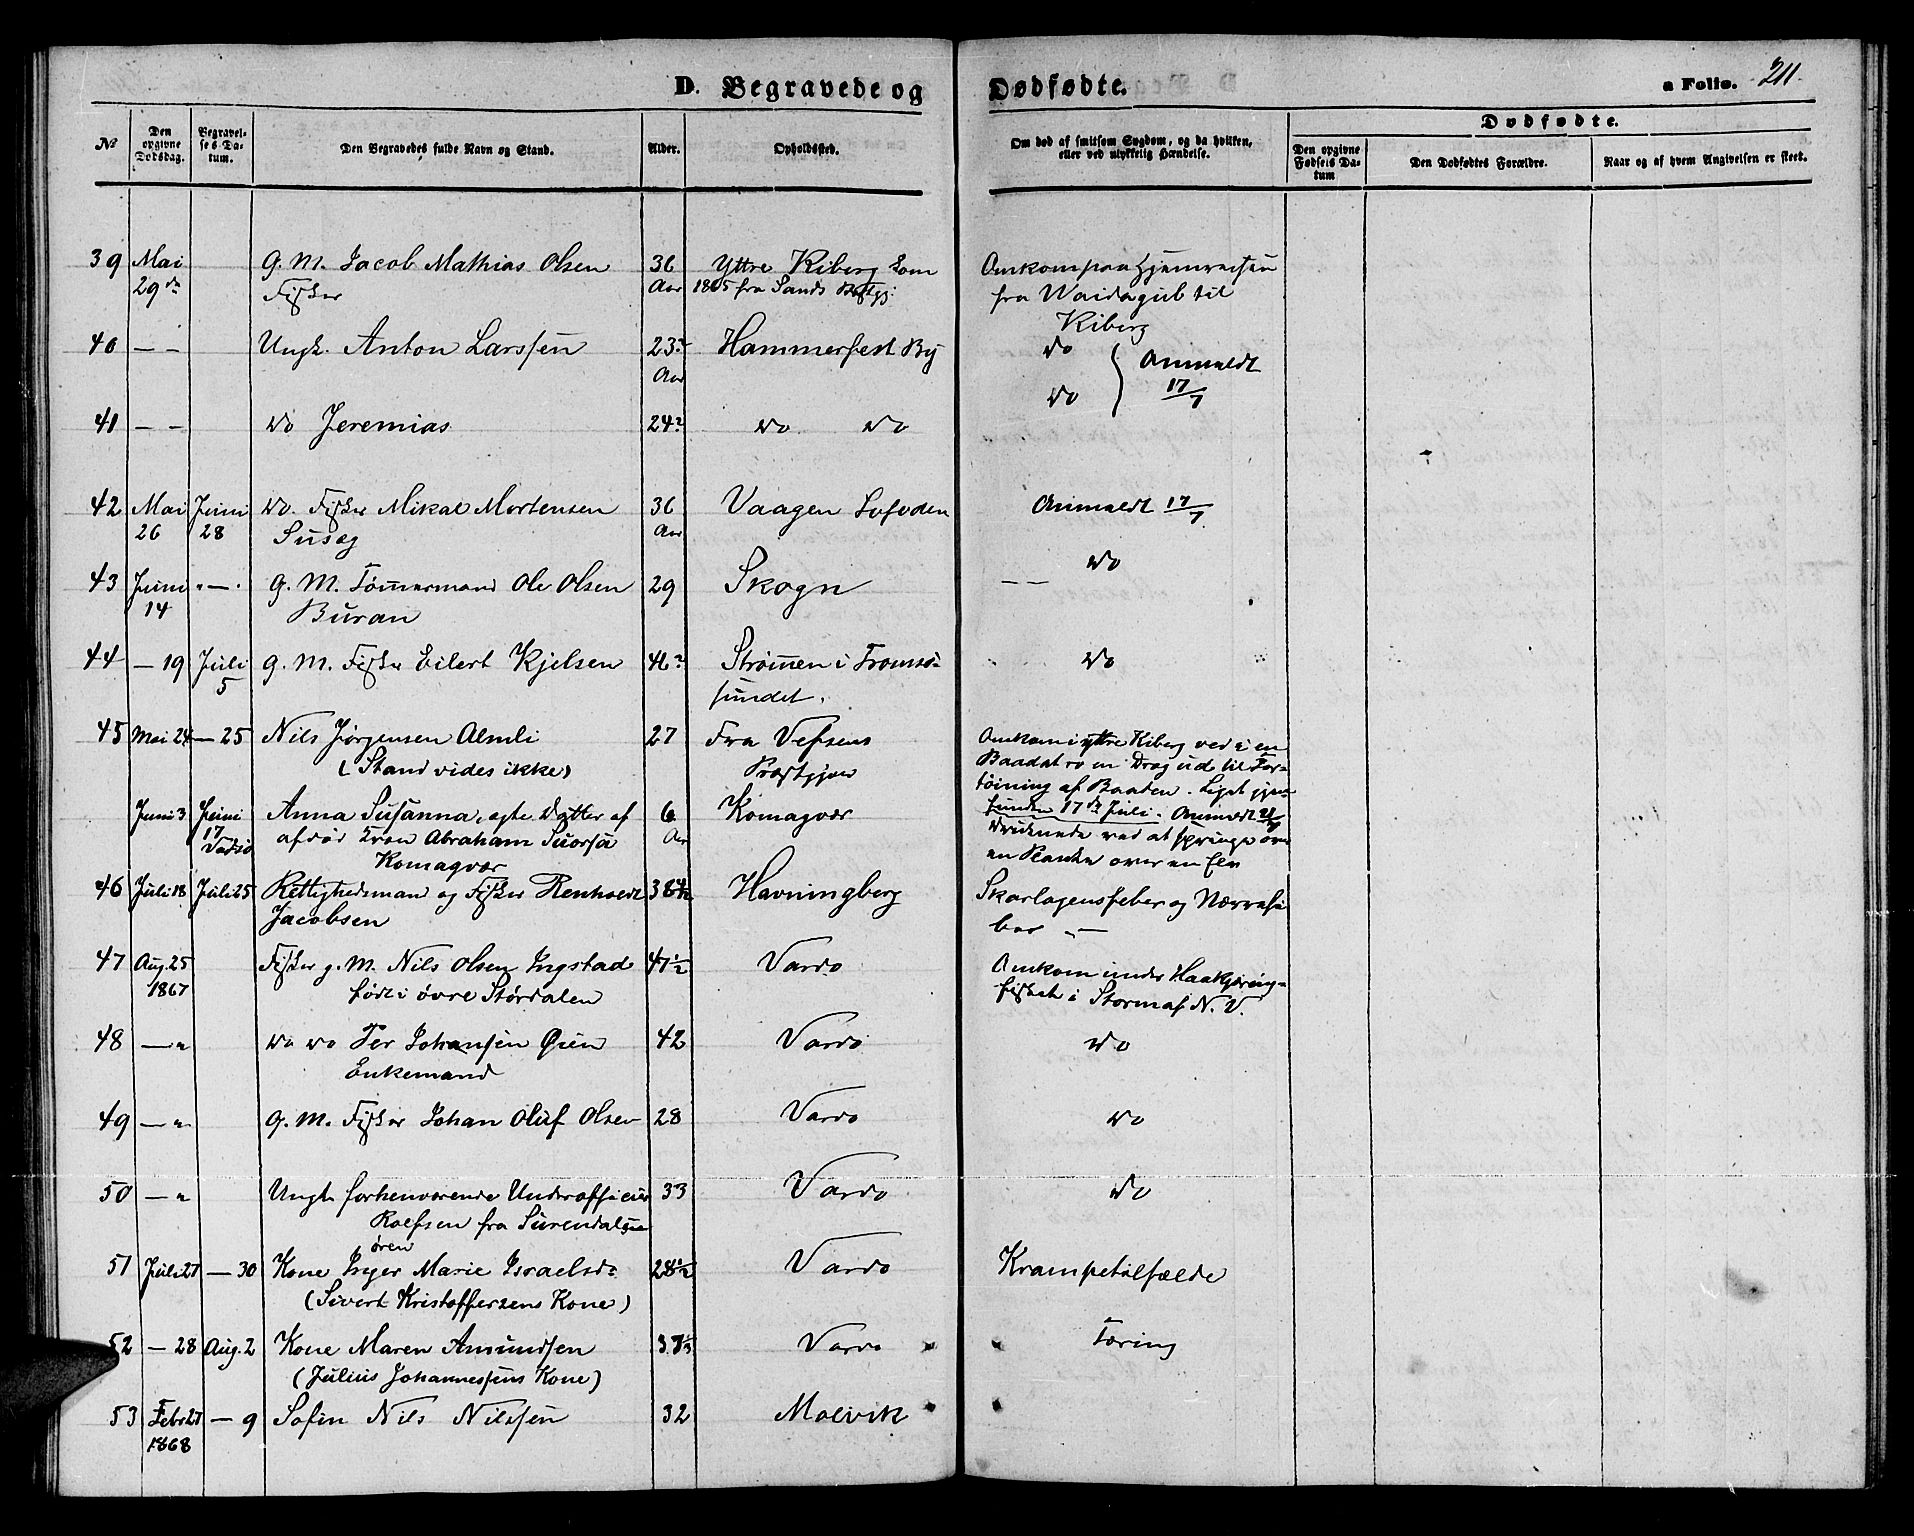 D. Begravede og Dødfødte. a Folio. 211.
No
Den opgivne Dødsdag.
Begravelses Datum.
Den Begravedes fulde Navn og Stand.
Alder.
Opholdssted.
Om død af smitsom Sygdom, og da hvilken, eller ved ulykkelig Hændelse.
Dødfødte.
Den opgivne Fødsels Datum
Den Dødfødtes Forældre.
Naar og af hvem Angivelsen er skeet.
39 Mai G. M. Jacob Mathias Olsen 36 Yttre Kiberg kom Omkom paa Hjemreisen
29de Fisker Aar 1865 fra Sands Præstgj: fra Waidagub til
Kiberg
40 — — Ungk. Anton Larssen 23 Hammerfest By Do Anmeldt
Aar 17/7
41 — — Do Jeremias 24 Do Do Do
42 Mai Juni Do. Fisker Mikal Mortensen 36 Vaagen Lofoden Anmeldt 17/7
26 28 Susæg Aar
43 Juni " — . G. M. Tømmermand Ole Olsen 29 Skogn — — Do
14 Buran
44 — 19 Juli G. M. Fisker Eilert Kjelsen Strømen i Tromsø- Do
5 sundet.
45 Mai 24 — 25 Nils Jørgensen Almli 27 Fra Vefsens Omkom i yttre Kiberg ved i en
(Stand vides ikke) Præstgjæld Baad at ro en Drag ud til For-
tøining af Baaden. Liget gjen-
funden 17de Juli. Anmeldt
Juni 3 Juni Anna Susanna, ægte Datter af 6 Komagvær Druknede ved at springe over
17 Vadsø afdød Kvæn Abraham Suorsa Aar en Planke over en Elv
Komagvær
46 Juli 18 Juli 25 Rettighedsman og Fisker Renholdt 38 Havningberg Skarlagensfeber og Nervefe
Jacobsen ber —
47 Aug. 25 Fisker g. M. Nils Olsen Ingstad 47 1/2 Vardø Omkom under Haakjæring-
1867 født i øvre Størdalen fisket i Storm af N. V.
48 — " Do Do Per Johansen Øien 42 Vardø Do
Enkemand
49 — " G. M. Fisker Johan Oluf Olsen 28 Vardø Do
50 — " Ungk. forhenværende Underofficier 33 Vardø Do
Rolfsen fra Surendals
øren
51 Juli 27 — 30 Kone Inger Marie Israelsd: 28 1/2 Vardø Krampetilfælde
(Sivert Kristoffersens Kone)
52 — 28 Aug. 2 Kone Maren Amundsen 37 1/3 Vardø Tæring
(Julius Johannessens Kone)
53 Febr 27 — 9 Nils Nilssen 32 Malvik
1868